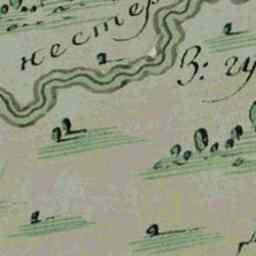 нестер
2
2
В: гу
22
2
2